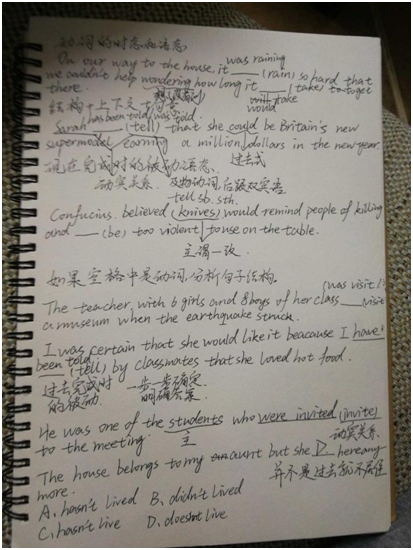 动词的时态和语态
was raining
On our way to the house, it ___ (rain) so hard that
we couldn't help wondering how long it ___ (take) to get
there. will take
would
结构+上下文
has been told was told
Sarah ___ (tell) that she could be Britain's new
supermodel earning a million dollars in the new year.
现在完成时的被动语态. 过去式
动宾关系 及物动词后跟双宾语
tell sb. sth.
Confucius believed (knives) would remind people of killing
and ___ (be) too violent to use on the table.
主谓一致.
如果空格中是动词,分析句子结构.
(was visit
The teacher, with 6 girls and 8 boys of her class ___ visit
a museum when the earthquake struck.
I was certain that she would like it beacause I have
been told (tell) by classmates that she loved hot food.
过去完成时 一步一步确定
的被动 明确答案.
He was one of the students who were invited (invite)
to the meeting. 主 动宾关系
The house belongs to my aunt but she D here any
more. 并不是过去就不居住
A. hasn't lived B. didn't lived
C. hasn't live D. doesn't live